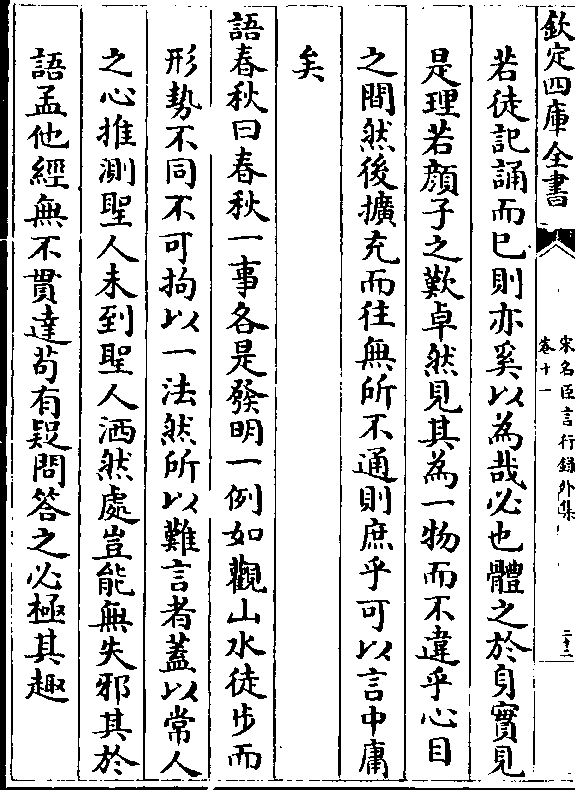 欽定四庫全書
宋名臣言行録外集
卷十一
二十二
若徒記誦而已則亦奚以為哉必也體之於身實見
是理若顔子之歎卓然見其為一物而不違乎心目
之間然後擴充而往無所不通則庶乎可以言中庸
矣
語春秋曰春秋一事各是發明一例如觀山水徒歩而
形勢不同不可拘以一法然所以難言者蓋以常人
之心推測聖人未到聖人洒然處豈能無失邪其於
語孟他經無不貫達苟有疑問答之必極其趣